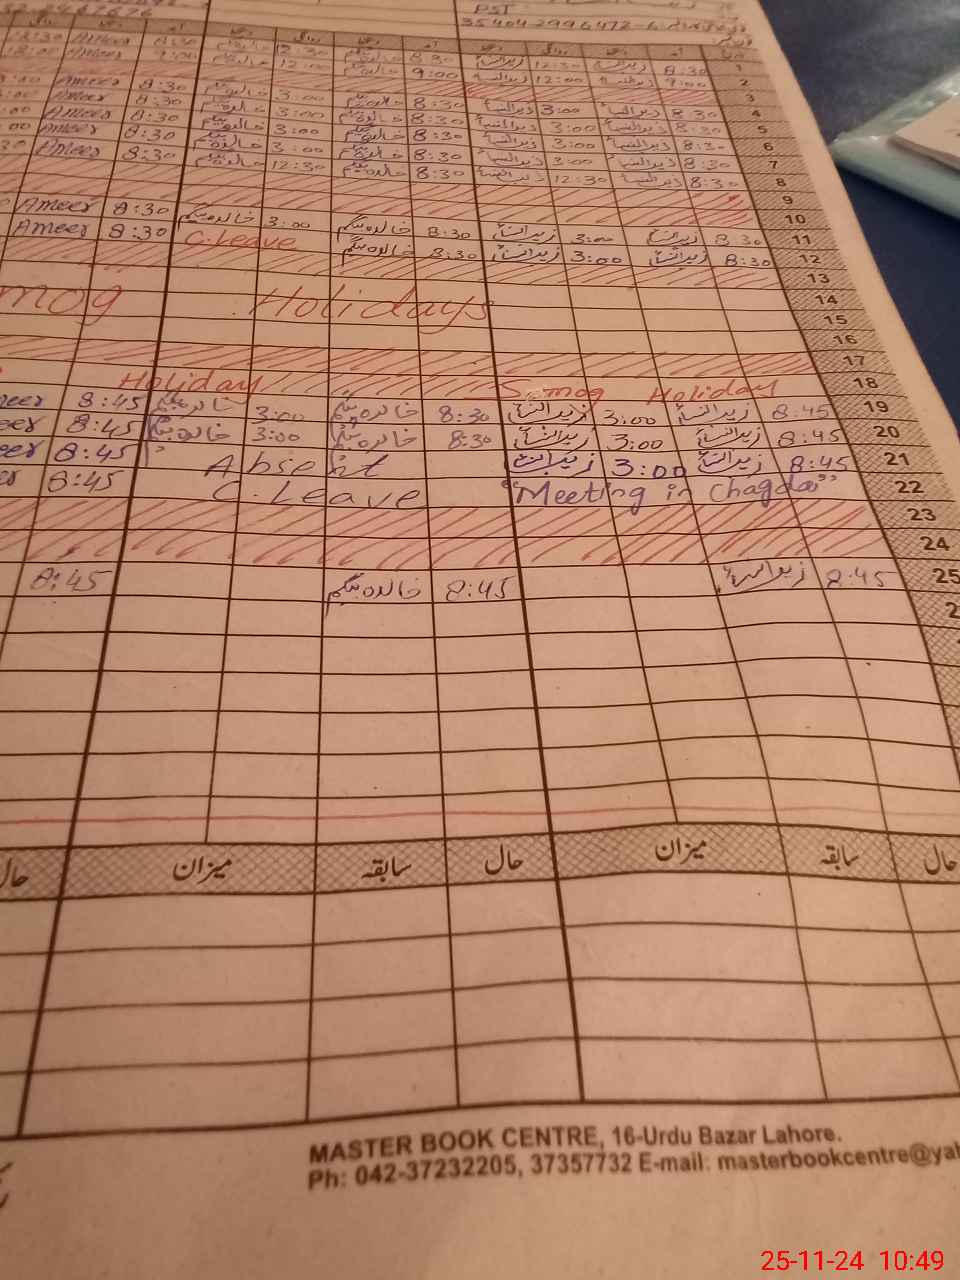 PST
35404 2996472-6
8:30 Ameer 8:30 خالدہ بیگم 12:30 خالدہ بیگم 8:30 زیب النساء 12:30 زیب النساء 8:30 1
Ameer خالدہ بیگم 12:00 خالدہ بیگم 9:00 زیب النساء 12:00 زیب النساء 9:00 2
3
Ameer 8:30 خالدہ بیگم 3:00 خالدہ بیگم 8:30 زیب النساء 3:00 زیب النساء 8:30 4
Ameer 8:30 خالدہ بیگم 3:00 خالدہ بیگم 8:30 زیب النساء 3:00 زیب النساء 8:30 5
Ameer 8:30 خالدہ بیگم 3:00 خالدہ بیگم 8:30 زیب النساء 3:00 زیب النساء 8:30 6
Ameer 8:30 خالدہ بیگم 3:00 خالدہ بیگم 8:30 زیب النساء 3:00 زیب النساء 8:30 7
Ameer 8:30 خالدہ بیگم 12:30 خالدہ بیگم 8:30 زیب النساء 12:30 زیب النساء 8:30 8
9
10
Ameer 8:30 خالدہ بیگم 3:00 خالدہ بیگم 8:30 زیب النساء 3:00 زیب النساء 8:30 11
Ameer 8:30 C.Leave خالدہ بیگم 8:30 زیب النساء 3:00 زیب النساء 8:30 12
13
mog Holidays 14
15
16
17
Holiday Smog Holiday 18
meer 8:45 خالدہ بیگم 3:00 خالدہ بیگم 8:30 زیب النساء 3:00 زیب النساء 8:45 19
eer 8:45 خالدہ بیگم 3:00 خالدہ بیگم 8:30 زیب النساء 3:00 زیب النساء 8:45 20
eer 8:45 Absent زیب النساء 3:00 زیب النساء 8:45 21
eer 8:45 C.Leave "Meeting in Chagdai" 22
23
24
8:45 خالدہ بیگم 8:45 زیب النساء 8:45 25
2
حال میزان سابقہ حال میزان سابقہ حال
MASTER BOOK CENTRE, 16-Urdu Bazar Lahore.
Ph: 042-37232205, 37357732 E-mail: masterbookcentre@yah
25-11-24 10:49